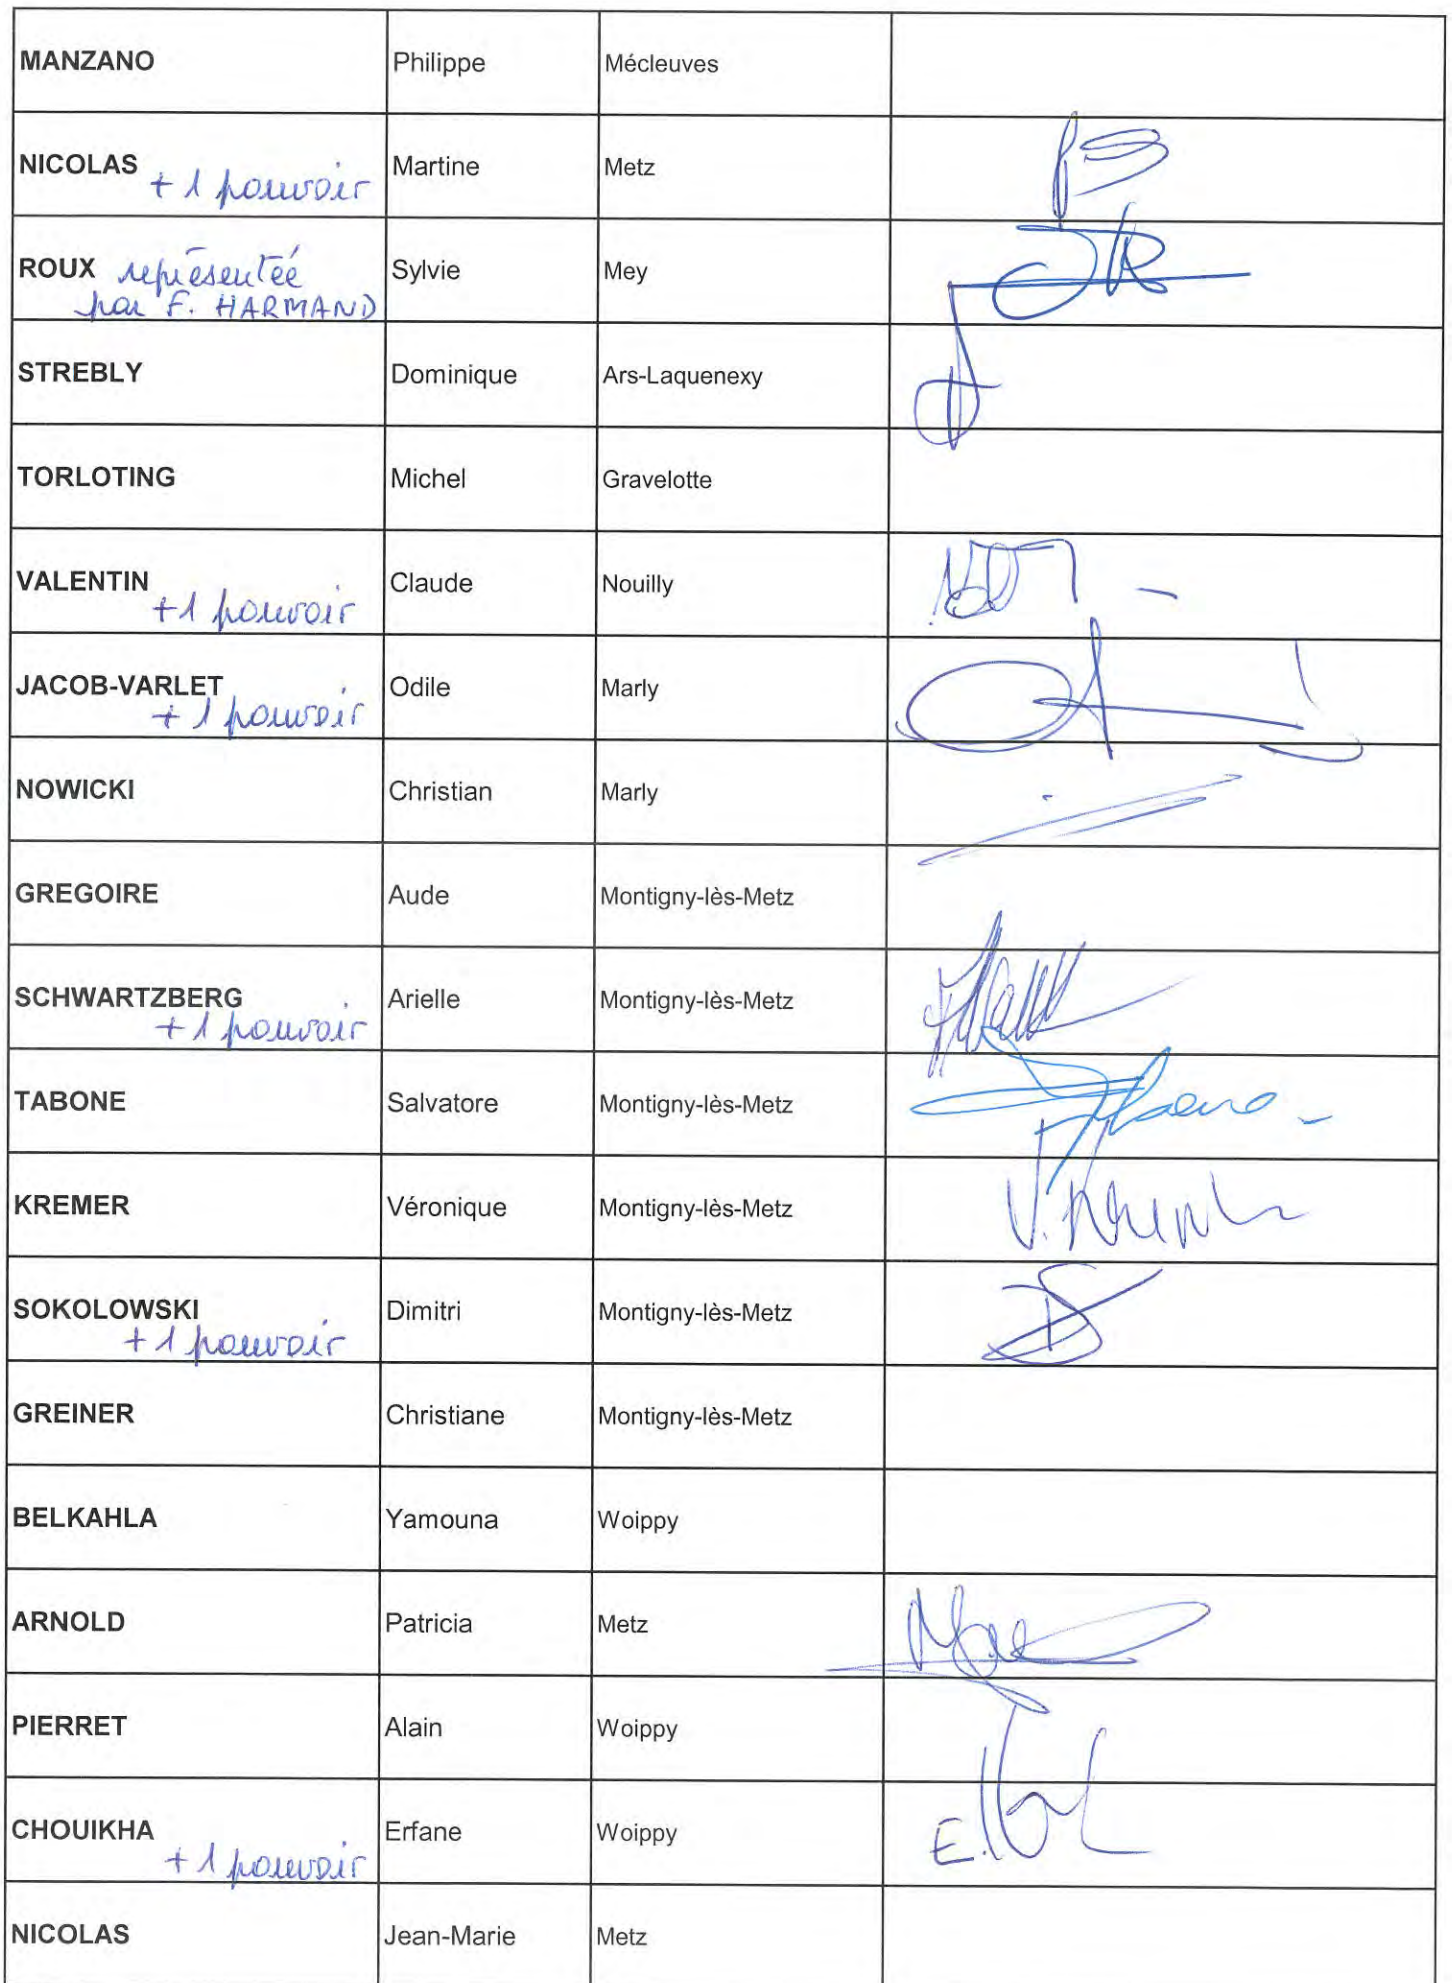 MANZANO Philippe Mécleuves
NICOLAS + 1 pouvoir Martine Metz
ROUX représentée Sylvie Mey
par F. HARMAND
STREBLY Dominique Ars-Laquenexy
TORLOTING Michel Gravelotte
VALENTIN Claude Nouilly
+ 1 pouvoir
JACOB-VARLET Odile Marly
+ 1 pouvoir
NOWICKI Christian Marly
GREGOIRE Aude Montigny-lès-Metz
SCHWARTZBERG Arielle Montigny-lès-Metz
+ 1 pouvoir
TABONE Salvatore Montigny-lès-Metz
KREMER Véronique Montigny-lès-Metz
SOKOLOWSKI Dimitri Montigny-lès-Metz
+ 1 pouvoir
GREINER Christiane Montigny-lès-Metz
BELKAHLA Yamouna Woippy
ARNOLD Patricia Metz
PIERRET Alain Woippy
CHOUIKHA Erfane Woippy
+ 1 pouvoir
NICOLAS Jean-Marie Metz